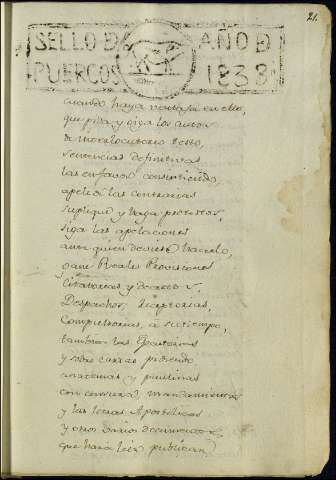 21.
SELLO D AÑO D
PUERCOS 1838
cuando haya ventaja en ello,
que pida y oiga los autos
de interlocutorio
sentencias definitivas
las en favor consentiendo,
apele á las contrarias
suplique y haga protestos,
siga las apelaciones
ante quien deviere hacerlo,
gane Reales Provisiones
citatorias y
Despachos, Receptorias,
Compulsorias, á su tiempo,
tambien las Ejecutorias
y sobre cartas pidiendo
anatemas y paulinas
con censuras, mandamientos
y las letras Apostolicas
y otros varios documentos
que hará leer, publicar